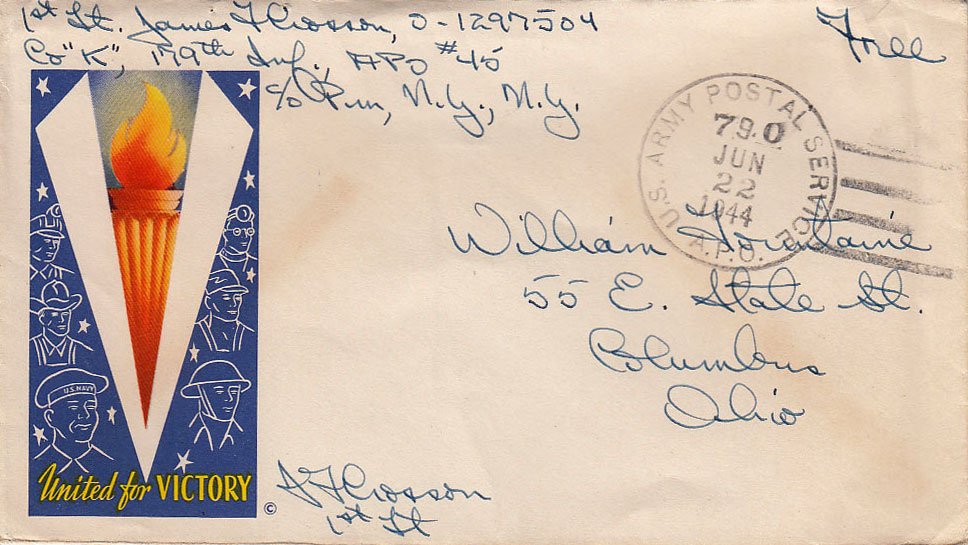 1st Lt. James F Crosson, O-1297504
Co "K", 179th Inf., APO #45
c/o P.m., N.Y., N.Y.
Free
U.S. ARMY POSTAL SERVICE
A.P.O.
790
JUN
22
1944
William Fountaine
55 E. State St.
Columbus
Ohio
U.S. NAVY
United for VICTORY
©
J F Crosson
1st Lt